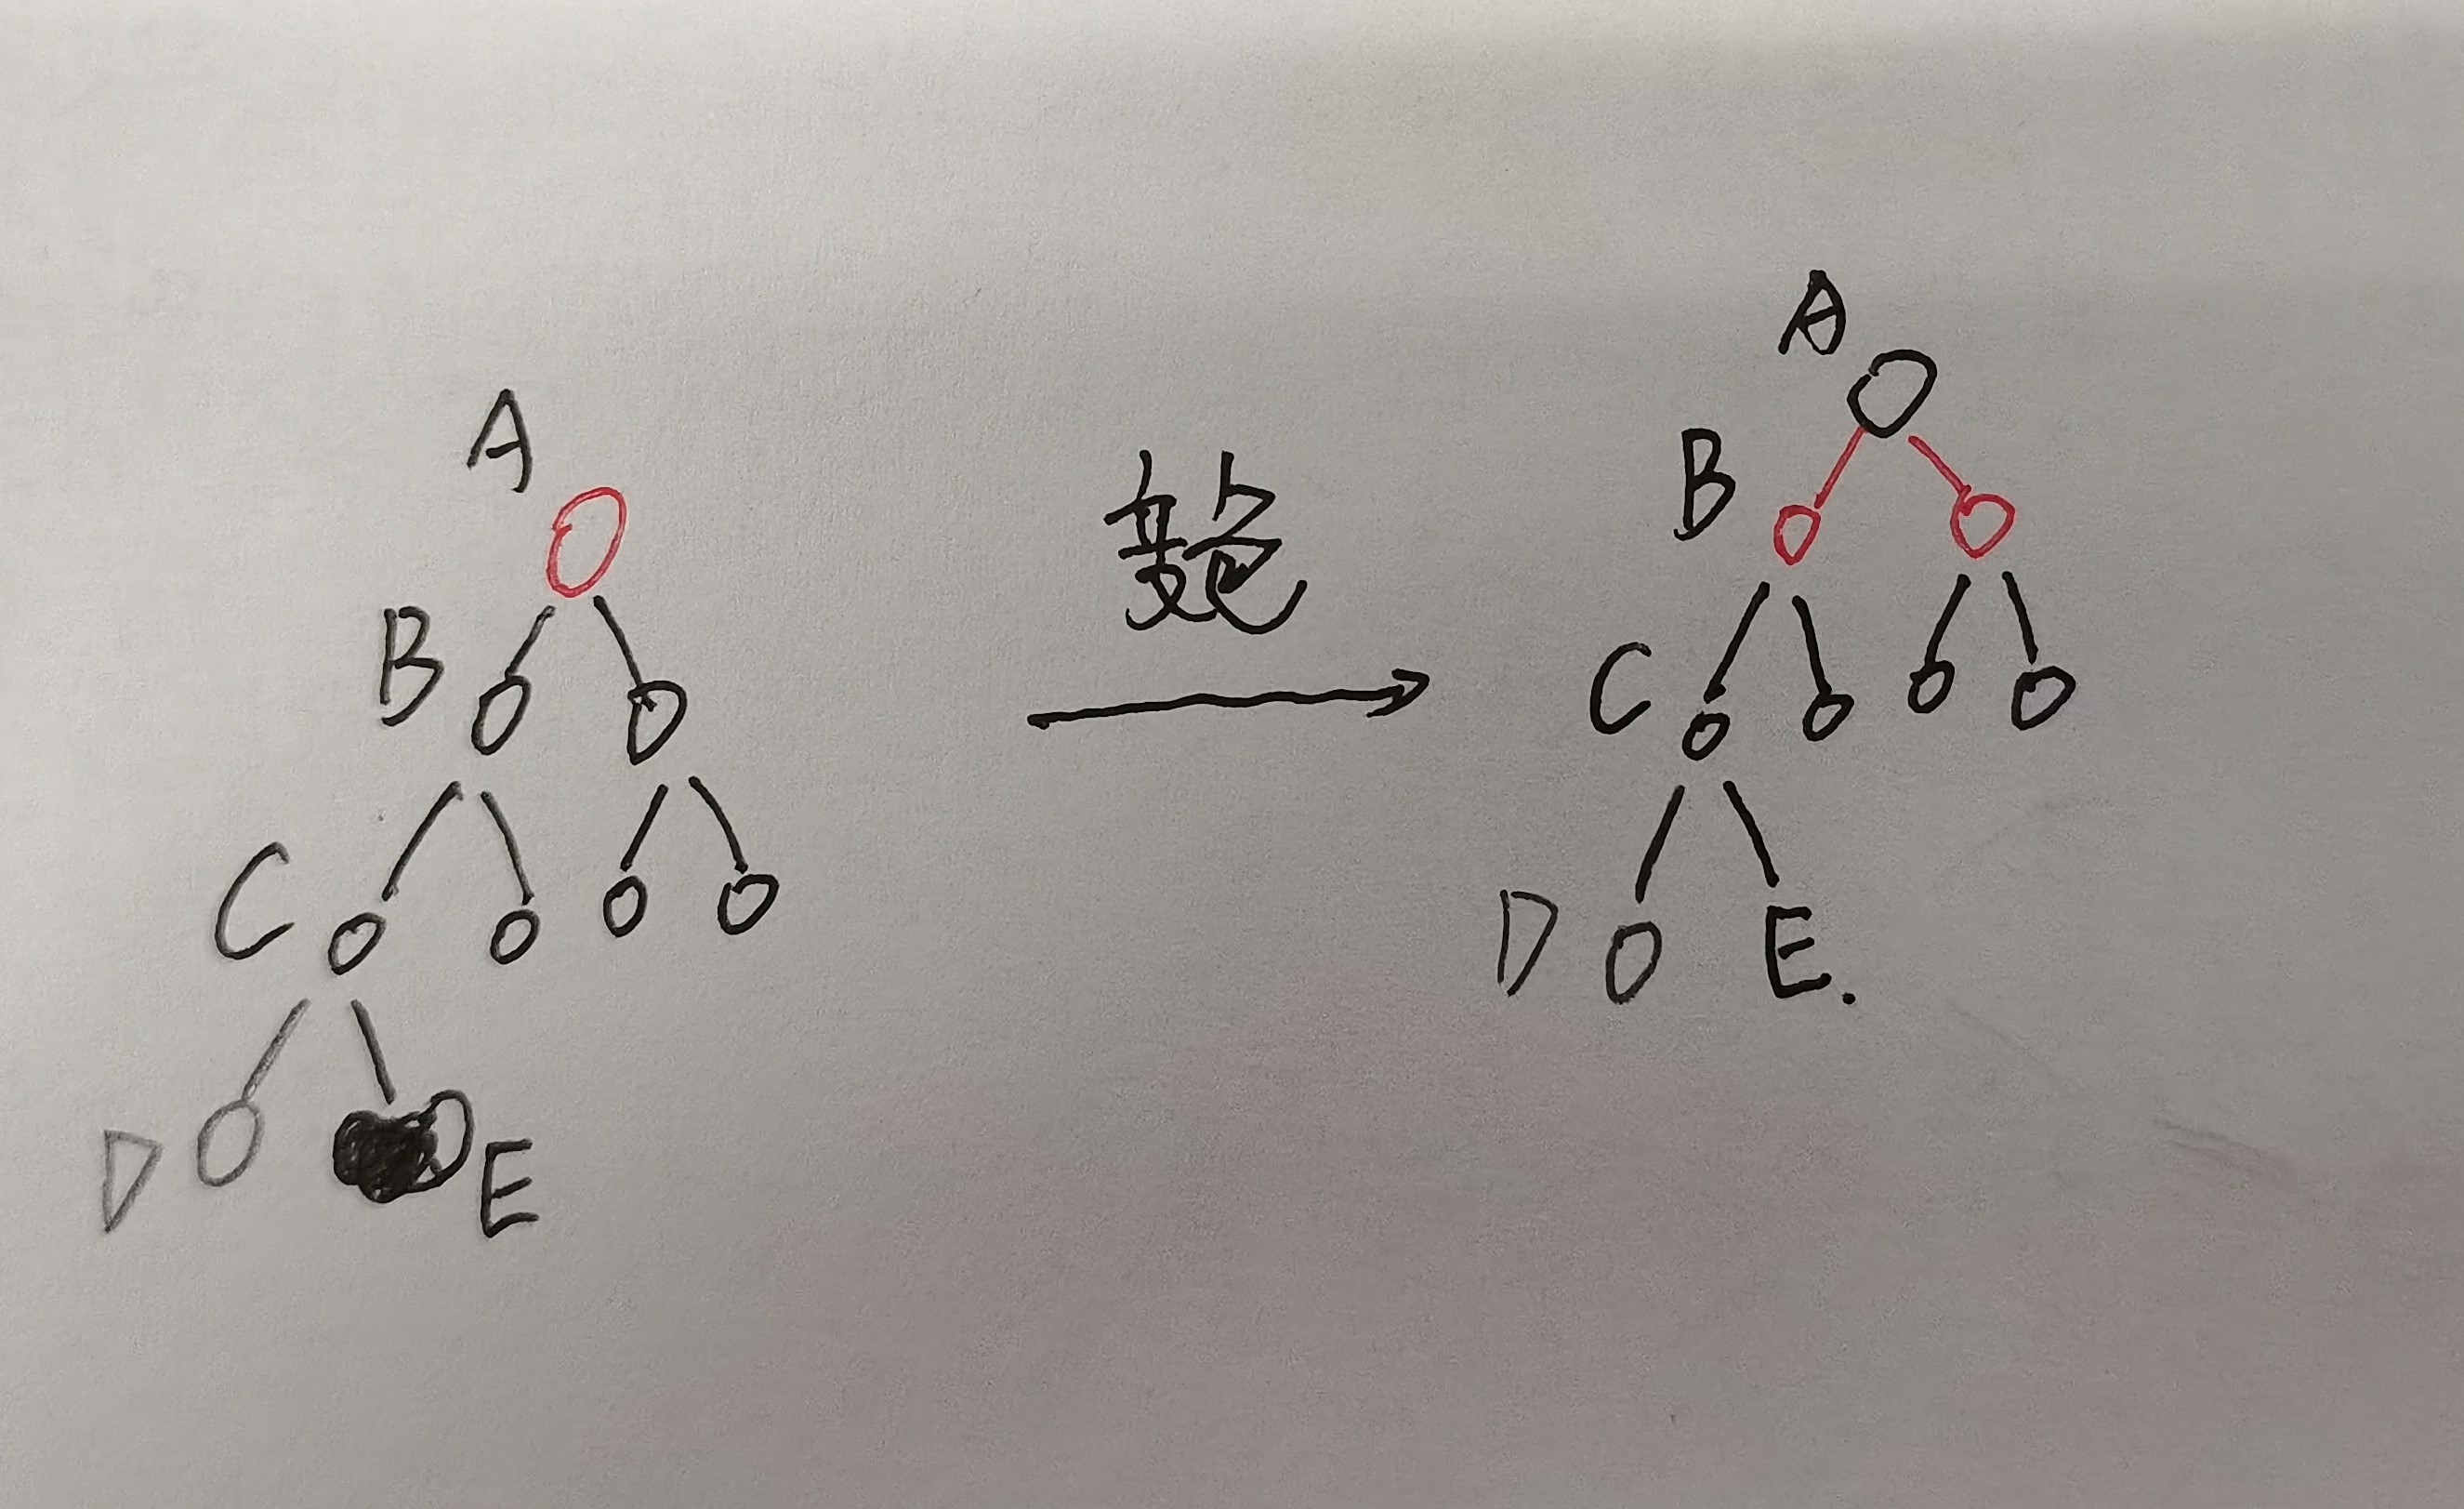 A
B
C
D E
变色
A
B
C
D E.